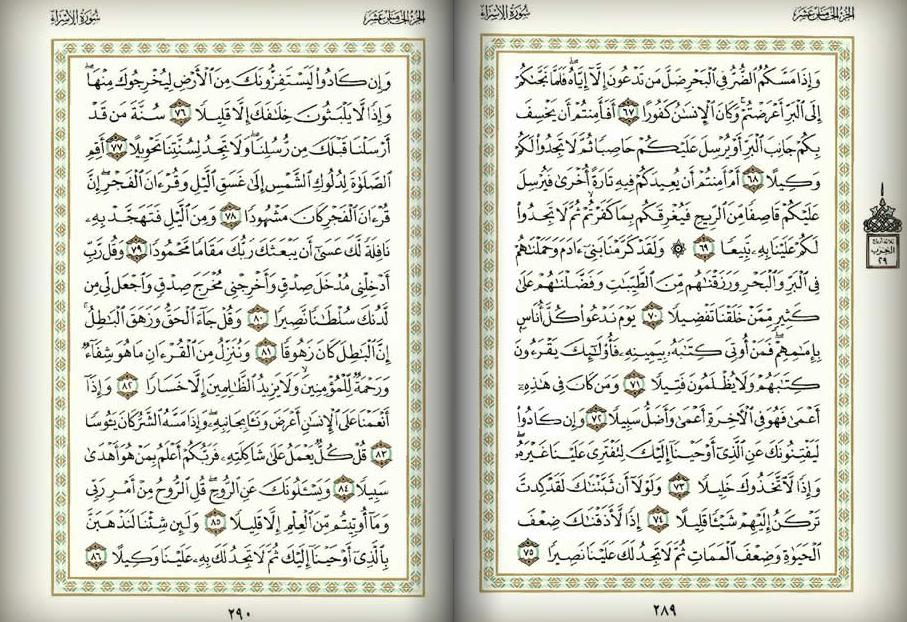 سُورَةُ الإِسْرَاءِ
الجُزْءُ الخَامِسَ عَشَرَ
وَإِذَا مَسَّكُمُ ٱلضُّرُّ فِي ٱلْبَحْرِ ضَلَّ مَن تَدْعُونَ إِلَّآ إِيَّاهُ ۖ فَلَمَّا نَجَّىٰكُمْ
إِلَى ٱلْبَرِّ أَعْرَضْتُمْ ۚ وَكَانَ ٱلْإِنسَٰنُ كَفُورًا ٦٧ أَفَأَمِنتُمْ أَن يَخْسِفَ
بِكُمْ جَانِبَ ٱلْبَرِّ أَوْ يُرْسِلَ عَلَيْكُمْ حَاصِبًا ثُمَّ لَا تَجِدُوا۟ لَكُمْ
وَكِيلًا ٦٨ أَمْ أَمِنتُمْ أَن يُعِيدَكُمْ فِيهِ تَارَةً أُخْرَىٰ فَيُرْسِلَ
عَلَيْكُمْ قَاصِفًا مِّنَ ٱلرِّيحِ فَيُغْرِقَكُم بِمَا كَفَرْتُمْ ۙ ثُمَّ لَا تَجِدُوا۟
لَكُمْ عَلَيْنَا بِهِۦ تَبِيعًا ٦٩ ۞ وَلَقَدْ كَرَّمْنَا بَنِىٓ ءَادَمَ وَحَمَلْنَٰهُمْ
فِي ٱلْبَرِّ وَٱلْبَحْرِ وَرَزَقْنَٰهُم مِّنَ ٱلطَّيِّبَٰتِ وَفَضَّلْنَٰهُمْ عَلَىٰ
كَثِيرٍ مِّمَّنْ خَلَقْنَا تَفْضِيلًا ٧٠ يَوْمَ نَدْعُوا۟ كُلَّ أُنَاسٍۭ
بِإِمَٰمِهِمْ ۖ فَمَنْ أُوتِىَ كِتَٰبَهُۥ بِيَمِينِهِۦ فَأُو۟لَٰٓئِكَ يَقْرَءُونَ
كِتَٰبَهُمْ وَلَا يُظْلَمُونَ فَتِيلًا ٧١ وَمَن كَانَ فِي هَٰذِهِۦٓ
أَعْمَىٰ فَهُوَ فِي ٱلْءَاخِرَةِ أَعْمَىٰ وَأَضَلُّ سَبِيلًا ٧٢ وَإِن كَادُوا۟
لَيَفْتِنُونَكَ عَنِ ٱلَّذِىٓ أَوْحَيْنَآ إِلَيْكَ لِتَفْتَرِىَ عَلَيْنَا غَيْرَهُۥ ۖ
وَإِذًا لَّٱتَّخَذُوكَ خَلِيلًا ٧٣ وَلَوْلَآ أَن ثَبَّتْنَٰكَ لَقَدْ كِدتَّ
تَرْكَنُ إِلَيْهِمْ شَيْـًٔا قَلِيلًا ٧٤ إِذًا لَّأَذَقْنَٰكَ ضِعْفَ
ٱلْحَيَوٰةِ وَضِعْفَ ٱلْمَمَاتِ ثُمَّ لَا تَجِدُ لَكَ عَلَيْنَا نَصِيرًا ٧٥
٢٨٩
ثلاثة أرباع
الحزب
٢٩
سُورَةُ الإِسْرَاءِ
الجُزْءُ الخَامِسَ عَشَرَ
وَإِن كَادُوا۟ لَيَسْتَفِزُّونَكَ مِنَ ٱلْأَرْضِ لِيُخْرِجُوكَ مِنْهَا ۖ
وَإِذًا لَّا يَلْبَثُونَ خِلَٰفَكَ إِلَّا قَلِيلًا ٧٦ سُنَّةَ مَن قَدْ
أَرْسَلْنَا قَبْلَكَ مِن رُّسُلِنَا ۖ وَلَا تَجِدُ لِسُنَّتِنَا تَحْوِيلًا ٧٧ أَقِمِ
ٱلصَّلَوٰةَ لِدُلُوكِ ٱلشَّمْسِ إِلَىٰ غَسَقِ ٱلَّيْلِ وَقُرْءَانَ ٱلْفَجْرِ ۖ إِنَّ
قُرْءَانَ ٱلْفَجْرِ كَانَ مَشْهُودًا ٧٨ وَمِنَ ٱلَّيْلِ فَتَهَجَّدْ بِهِۦ
نَافِلَةً لَّكَ عَسَىٰٓ أَن يَبْعَثَكَ رَبُّكَ مَقَامًا مَّحْمُودًا ٧٩ وَقُل رَّبِّ
أَدْخِلْنِى مُدْخَلَ صِدْقٍ وَأَخْرِجْنِى مُخْرَجَ صِدْقٍ وَٱجْعَل لِّى مِن
لَّدُنكَ سُلْطَٰنًا نَّصِيرًا ٨٠ وَقُلْ جَآءَ ٱلْحَقُّ وَزَهَقَ ٱلْبَٰطِلُ ۚ
إِنَّ ٱلْبَٰطِلَ كَانَ زَهُوقًا ٨١ وَنُنَزِّلُ مِنَ ٱلْقُرْءَانِ مَا هُوَ شِفَآءٌ
وَرَحْمَةٌ لِّلْمُؤْمِنِينَ ۙ وَلَا يَزِيدُ ٱلظَّٰلِمِينَ إِلَّا خَسَارًا ٨٢ وَإِذَآ
أَنْعَمْنَا عَلَى ٱلْإِنسَٰنِ أَعْرَضَ وَنَـَٔا بِجَانِبِهِۦ ۖ وَإِذَا مَسَّهُ ٱلشَّرُّ كَانَ يَـُٔوسًا
٨٣ قُلْ كُلٌّ يَعْمَلُ عَلَىٰ شَاكِلَتِهِۦ فَرَبُّكُمْ أَعْلَمُ بِمَنْ هُوَ أَهْدَىٰ
سَبِيلًا ٨٤ وَيَسْـَٔلُونَكَ عَنِ ٱلرُّوحِ ۖ قُلِ ٱلرُّوحُ مِنْ أَمْرِ رَبِّى
وَمَآ أُوتِيتُم مِّنَ ٱلْعِلْمِ إِلَّا قَلِيلًا ٨٥ وَلَئِن شِئْنَا لَنَذْهَبَنَّ
بِٱلَّذِىٓ أَوْحَيْنَآ إِلَيْكَ ثُمَّ لَا تَجِدُ لَكَ بِهِۦ عَلَيْنَا وَكِيلًا ٨٦
٢٩٠